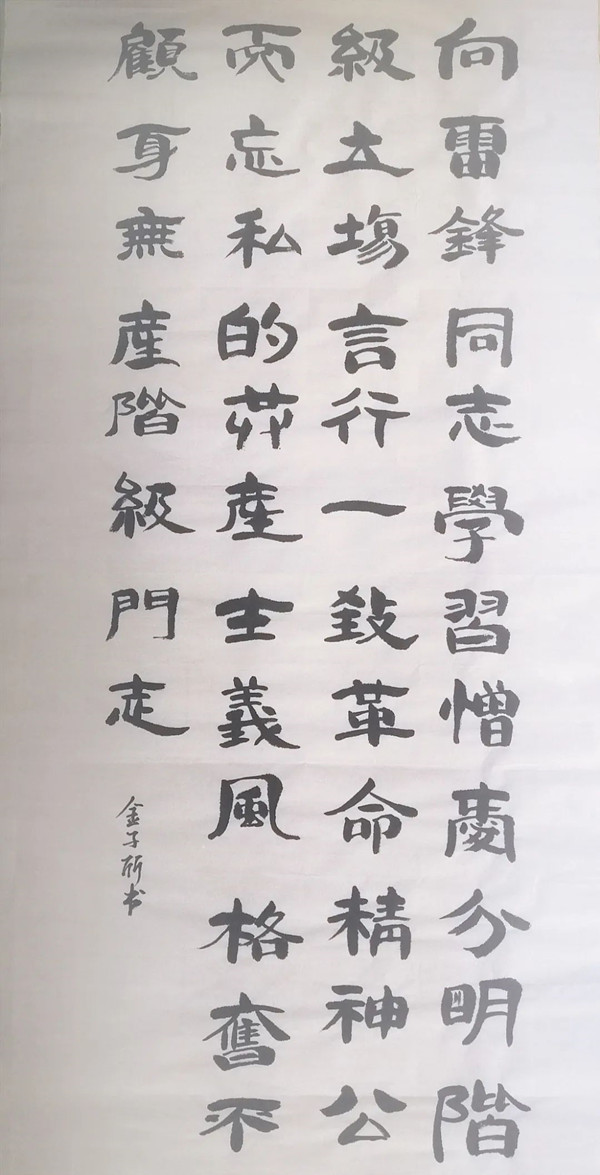 向雷鋒同志學習憎愛分明階
級立場言行一致革命精神公
而忘私的共産主義風格奮不
顧身無産階級門走
金子所书